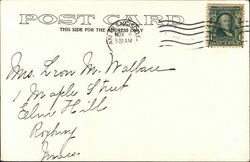 POST CARD
THIS SIDE FOR THE ADDRESS ONLY
NOV
5 30 AM
Mrs. Leon M. Wallace
1 Maple Street
Elm Hill
Roxbury
Mass.